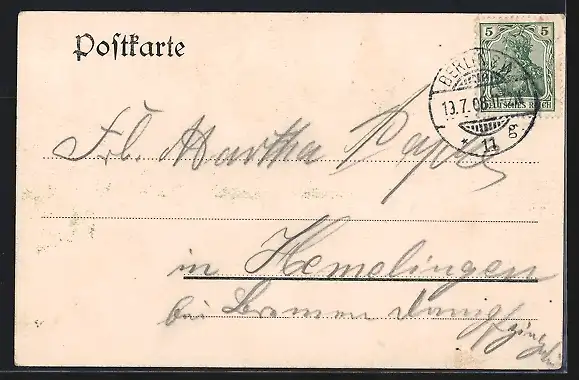 Postkarte
5 5
DEUTSCHES REICH
BERLIN
13.7.06
* 11 g
Frl. Martha
in Hemelingen
bei Bremen